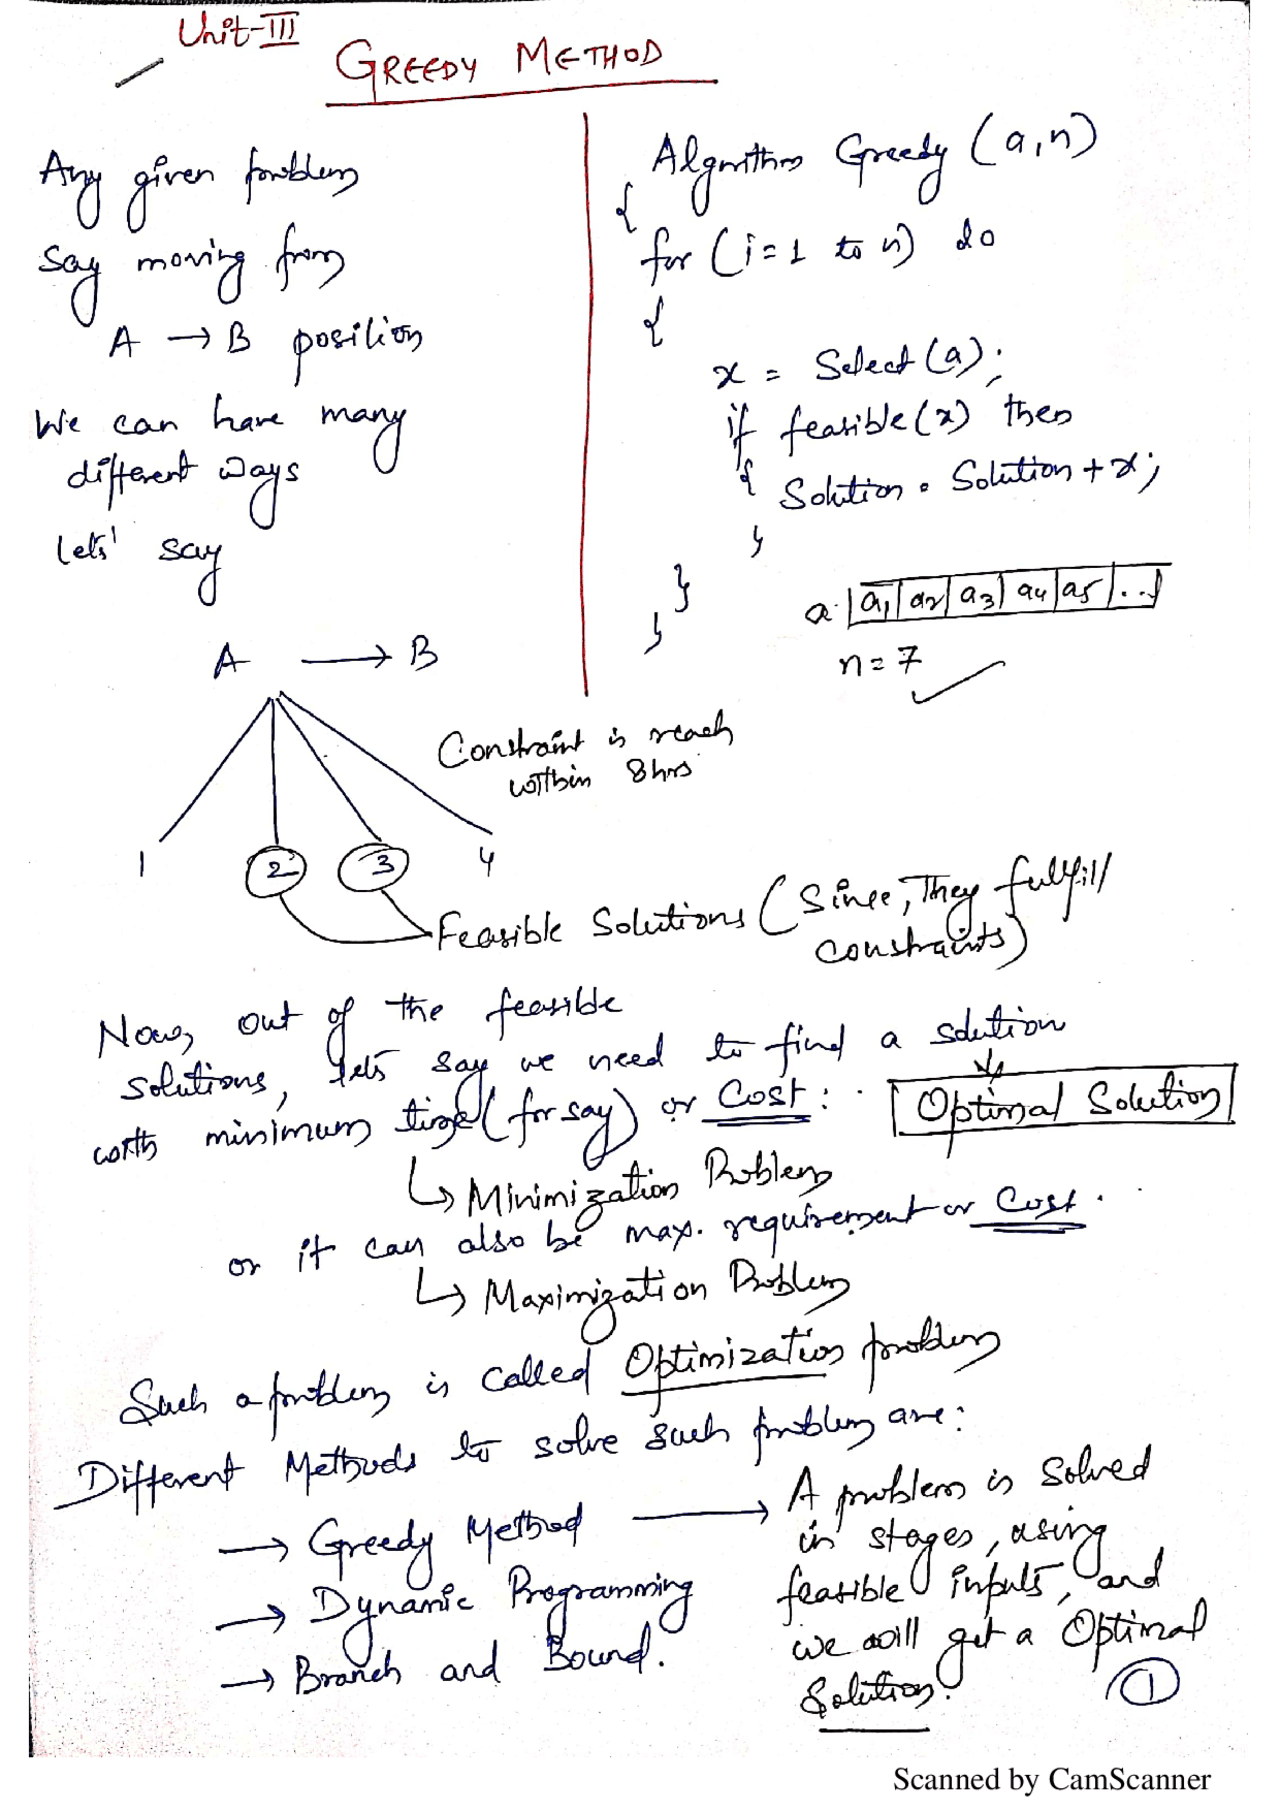 Unit-III
GREEDY METHOD
Any given problem
say moving from
A → B position
We can have many
different ways
lets' say
A → B
Algorithm Greedy (a,n)
{
for (i=1 to n) do
{
x = Select(a);
if feasible(x) then
{ Solution = Solution + x;
}
}
}
a: a1 a2 a3 a4 a5 ...
n = 7
Constraint is reach
within 8hrs
1 2 3 4
Feasible Solutions (Since, They fulfill
constraints)
Now, out of the feasible
solutions, lets say we need to find a solution
with minimum time (for say) or Cost: Optimal Solution
↳ Minimization Problem
or it can also be max. requirement or Cost.
↳ Maximization Problem
Such a problem is called Optimization problem
Different Methods to solve such problem are:
→ Greedy Method → A problem is solved
in stages, using
→ Dynamic Programming feasible inputs, and
→ Branch and Bound. we will get a Optimal
Solution.
1
Scanned by CamScanner